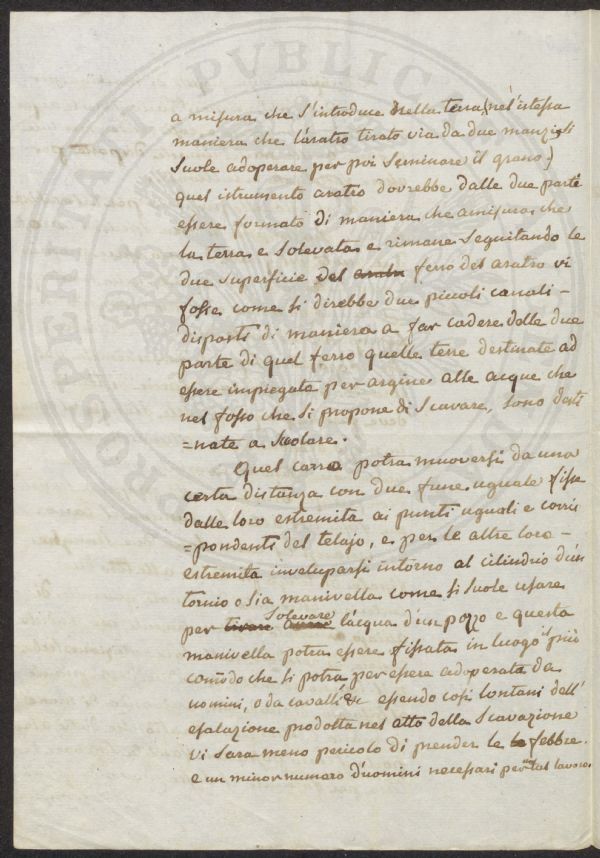 PUBLIC
PROSPERITATI
a misura che s'introduce nella terra (nel'istessa
maniera che l'aratro tirato via da due manzi si
suole adoperare per poi seminare il grano)
quel istrumento aratro dovrebbe dalle due parti
essere formato di maniera che amisura che
la terra e solevata e rimane seguitando le
due superficie del aratro ferro del aratro vi
fosse come si direbbe due piccoli canali -
disposti di maniera a far cadere dalle due
parte di quel ferro quelle terre destinate ad
essere impiegate per argine alle acque che
nel fosso che si propone di scavare, sono desti
=nate a scolare.
Quel carro potra muoversi da una
certa distanza con due fune uguale fisse
dalle loro estremita ai punti uguali e corris
=pondenti del telajo, e per le altre loro -
estremita invelupparsi intorno al cilindrio d'un
tornio o sia manivella come si suole usare
solevare
per tirare l'acqua d'un pozzo e questa
manivella potra essere fissata in luogo il piu
comodo che si potra per essere adoperata da
uomini, o da cavalli &c essendo cosi lontani dell'
esalazione prodotta nel atto della scavazione
vi sara meno pericolo di prender le febbre
e un minor numero d'uomini necessari per un tal lavoro.